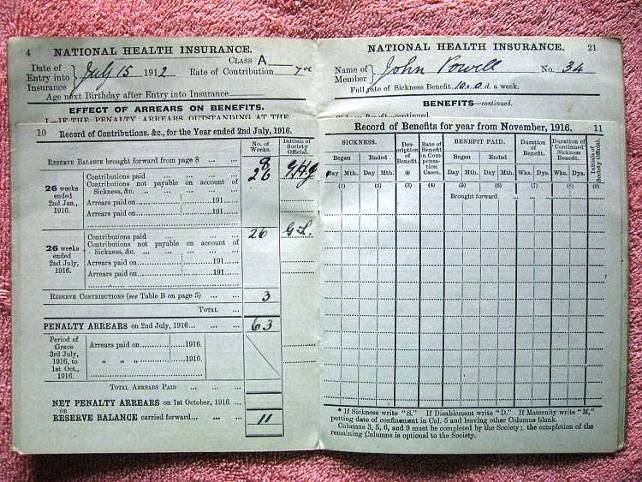 4 NATIONAL HEALTH INSURANCE.
CLASS A
Date of Entry into Insurance } July 15 1912 Rate of Contribution 7
Age next Birthday after Entry into Insurance
EFFECT OF ARREARS ON BENEFITS.
I.—IF THE PENALTY ARREARS OUTSTANDING AT THE
10 Record of Contributions, &c., for the Year ended 2nd July, 1916.
No. of Weeks. Initials of Society Official.
RESERVE BALANCE brought forward from page 8 ... ... 8
26 weeks ended 2nd Jan., 1916.
Contributions paid ... ... ... ... 26
Contributions not payable on account of
Sickness, &c. ... ... ... ...
Arrears paid on 191 ...
Arrears paid on 191 ...
26 weeks ended 2nd July, 1916.
Contributions paid ... ... ... ... 26
Contributions not payable on account of
Sickness, &c. ... ... ... ...
Arrears paid on 191 ...
Arrears paid on 191 ...
RESERVE CONTRIBUTIONS (see Table B on page 5) ... ... 3
TOTAL ... ...
PENALTY ARREARS on 2nd July, 1916 ... ... ... 63
Period of Grace 3rd July, 1916, to 1st Oct., 1916.
Arrears paid on 1916.
" " " 1916.
TOTAL ARREARS PAID ... ... ...
NET PENALTY ARREARS on 1st October, 1916 ...
OR
RESERVE BALANCE carried forward ... ... ... 11
NATIONAL HEALTH INSURANCE. 21
Name of Member } John Powell No. 34
Full rate of Sickness Benefit 10s. 0 d. a week.
BENEFITS—continued.
Record of Benefits for year from November, 1916. 11
SICKNESS. Description of Benefit. * Rate of Benefit in Compensation Cases. BENEFIT PAID. Duration of Benefit. Duration of Continued Benefit. Initials of Society Official.
Began Ended Began Ended
Day Mth. Day Mth. Day Mth. Day Mth. Wks. Dys. Wks. Dys.
(1) (2) (3) (4) (5) (6) (7) (8) (9)
Brought forward
* If Sickness write "S." If Disablement write "D." If Maternity write "M,"
putting date of confinement in Col. 5 and leaving other Columns blank.
Columns 3, 5, 6, and 9 must be completed by the Society; the completion of the
remaining Columns is optional to the Society.